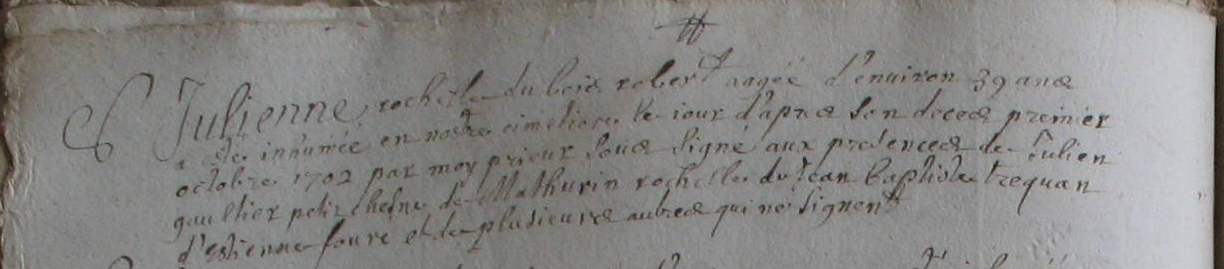 Julienne rochelle du bois robert aagée d'enuiron 39 ans
a esté inhumée en nostre cimetiere le iour d'apres son deces premier
octobre 1702 par moy prieur sous signé aux presences de Julien
gaultier petit chesne de Mathurin rochelle de Jean baptiste trequan
d'estienne foure et de plusieurs autres qui ne signent